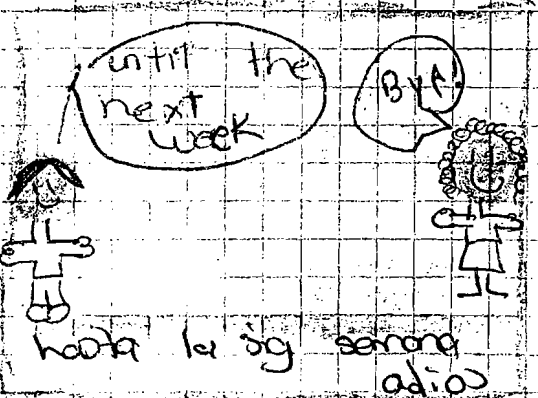 until the
next
week
Bye!
hasta la sig semana
adios